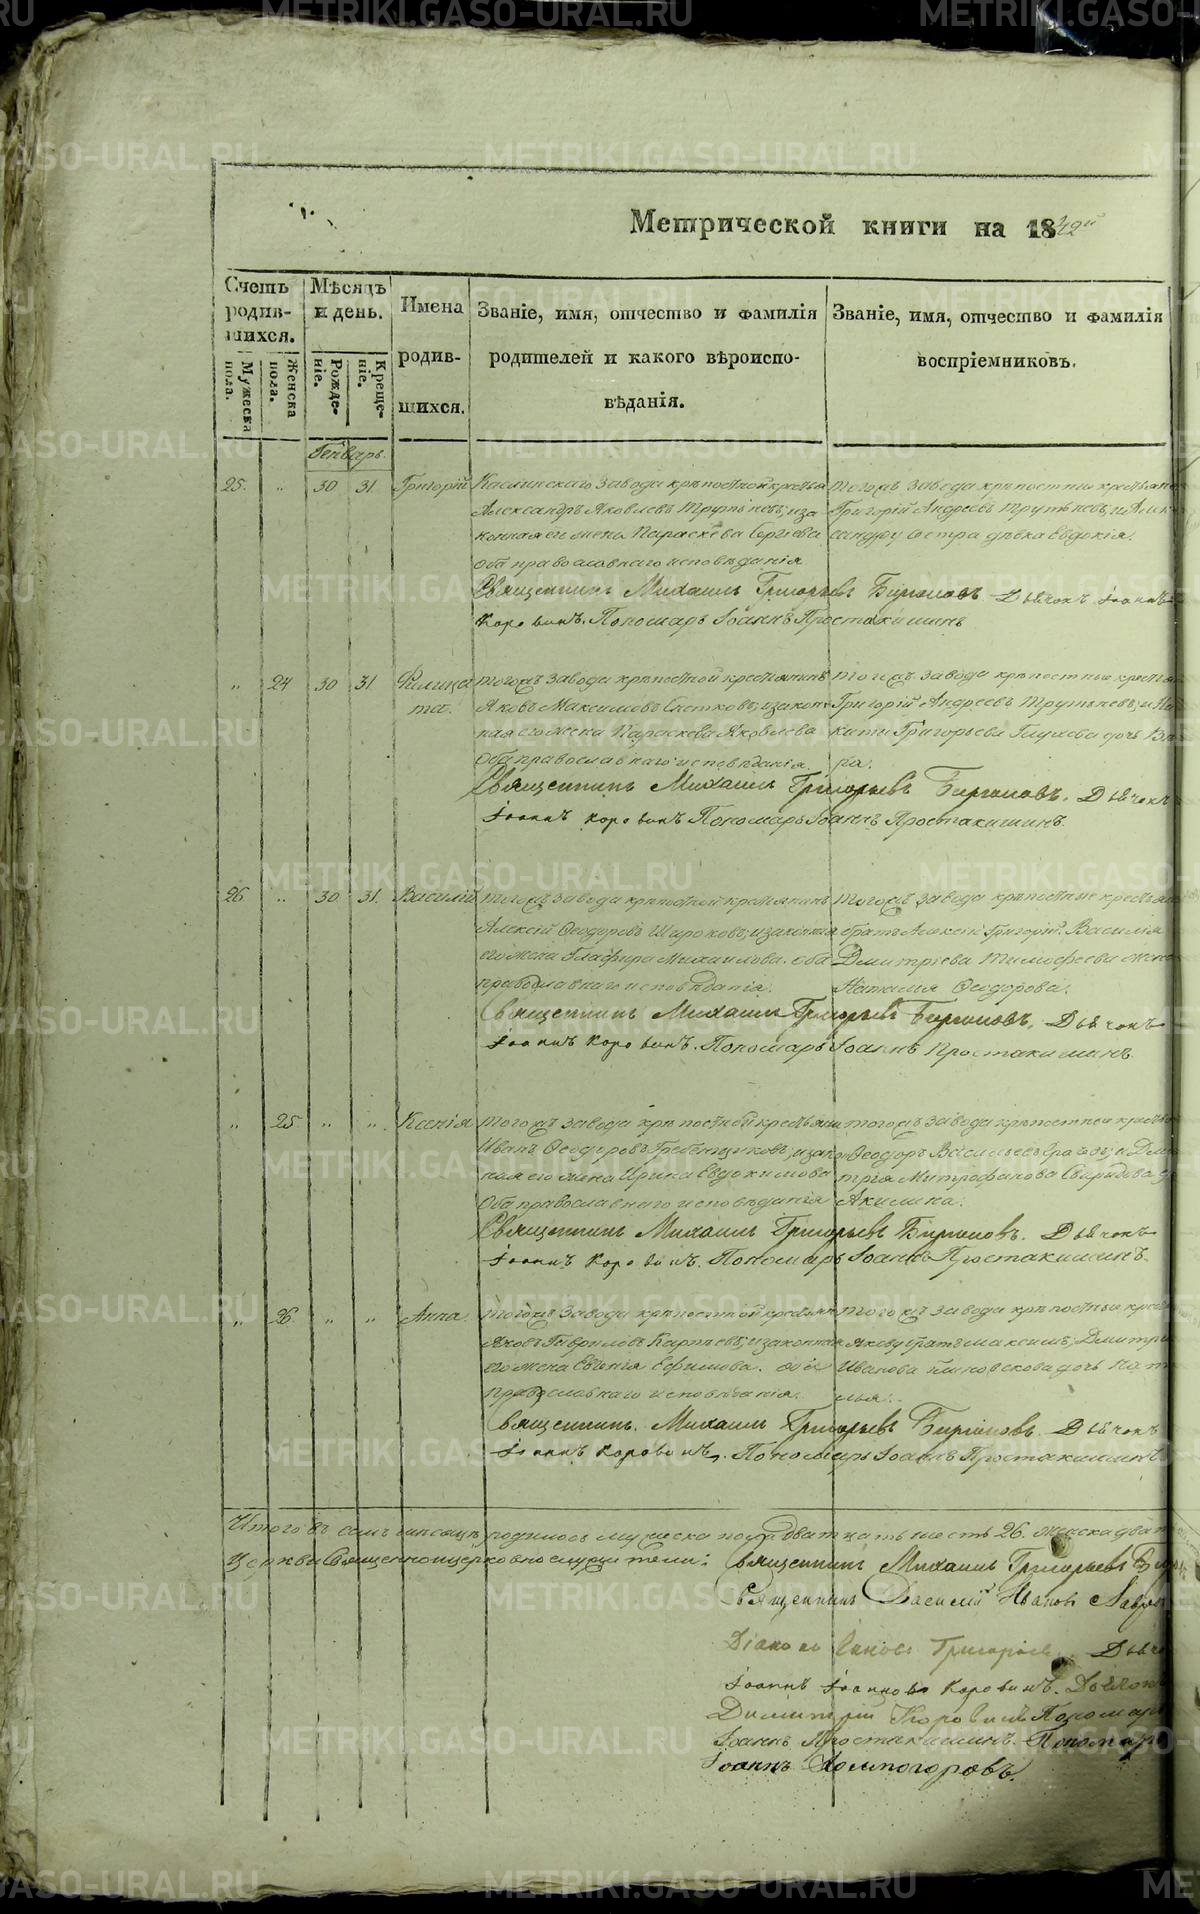 Метрической книги на 1842й
Счетъ родив-шихся.
Мужеска пола.
Женска пола.
Мѣсяцъ и день.
Рожде-ніе.
Креще-ніе.
Имена
родив-
шихся.
Званіе, имя, отчество и фамилія
родителей и какого вѣроиспо-
вѣданія.
Званіе, имя, отчество и фамилія
воспріемниковъ.
Генварь
25. „ 30 31. Григорій
Каслинскаго завода крѣпостной
Александръ Яковлевъ Трутневъ, и за
конная его жена Параскева Сергіева
оба православнаго исповѣданія
тогожъ завода крѣпостные
Григорій Андреевъ Трутневъ, и Алек
сандру сестра дѣвка Евдокія.
Священникъ Михаилъ Григорьевъ Бирюковъ. Дьячокъ Іоаннъ
Коровинъ. Пономарь Іоаннъ Простакишинъ
„ 24 30 31 Филица
та.
тогожъ завода крѣпостной крестьянинъ
Яковъ Максимовъ и закон
ная его жена Параскева Яковлева
Оба православнаго исповѣданія.
тогожъ завода крѣпостные
Григорій Андреевъ Трутневъ, и Ни
киты Григорьева Глухова дочь
ра.
Священникъ Михаилъ Григорьевъ Бирюковъ. Дьячокъ
Іоаннъ Коровинъ Пономарь Іоаннъ Простакишинъ.
26 „ 30 31. Василій
тогожъ завода крѣпостной крестьянинъ
Алексій Феодоровъ Широковъ, и законная
его жена Глафира Михаилова. оба
православнаго исповѣданія.
тогожъ завода крѣпостные
братъ Алексій Григорій. Василія
Дмитріева Тимофеева жена
Наталия Феодорова.
Священникъ Михаилъ Григорьевъ Бирюковъ. Дьячокъ
Іоаннъ Коровинъ. Пономарь Іоаннъ Простакишинъ.
„ 25 „ „ Ксенія
тогожъ завода крѣпостной
Иванъ Феодоровъ Гребенщиковъ, и закон
ная его жена Ирина Евдокимова
Оба православнаго исповѣданія
тогожъ завода крѣпостной
Феодоръ Васильевъ и Дми
трія Митрофанова Свиридова
Акилина.
Священникъ Михаилъ Григорьевъ Бирюковъ. Дьячокъ
Іоаннъ Коровинъ. Пономарь Іоаннъ Простакишинъ.
„ 26. „ „ Анна.
тогожъ завода крѣпостной
Яковъ Гавриловъ Карпѣевъ, и законная
его жена Евгенія Ефимова. оба
православнаго исповѣданія.
тогожъ завода крѣпостные
Якову братъ Максимъ, Дмитрія
Иванова дочь Ната
лья.
Священникъ. Михаилъ Григорьевъ Бирюковъ. Дьячокъ
Іоаннъ Коровинъ. Пономарь Іоаннъ Простакишинъ
Итого въ семъ мѣсяцѣ родилось мужеска пола двадцать шесть 26. женска
Церкви Священноцерковнослужители: Священникъ Михаилъ Григорьевъ
Священникъ Василій Ивановъ
Діаконъ Григорьевъ. Дьячо
Іоаннъ Іоанновъ Коровинъ. Дьячокъ
Димитрій Коровинъ Пономарь
Іоаннъ Простакишинъ. Пономарь
Іоаннъ Холмогоровъ.
METRIKI.GASO-URAL.RU